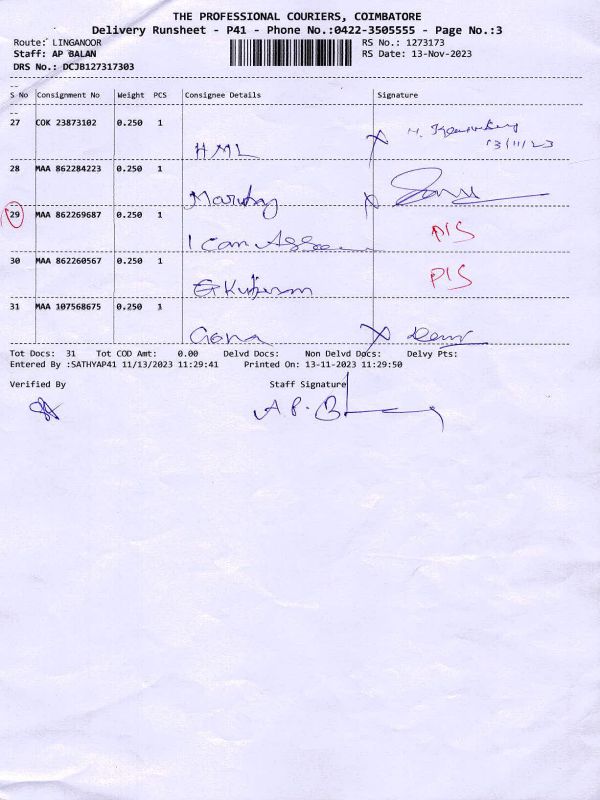 THE PROFESSIONAL COURIERS, COIMBATORE
Delivery Runsheet - P41 - Phone No.:0422-3505555 - Page No.:3
Route: LINGANOOR RS No.: 1273173
Staff: AP BALAN RS Date: 13-Nov-2023
DRS No.: DCJB127317303
S No Consignment No Weight PCS Consignee Details Signature
27 COK 23873102 0.250 1
HML 13/11/23
28 MAA 862284223 0.250 1
29 MAA 862269687 0.250 1
I can P/S
30 MAA 862260567 0.250 1
P/S
31 MAA 107568675 0.250 1
Tot Docs: 31 Tot COD Amt: 0.00 Delvd Docs: Non Delvd Docs: Delvy Pts:
Entered By :SATHYAP41 11/13/2023 11:29:41 Printed On: 13-11-2023 11:29:50
Verified By Staff Signature
A.P. B